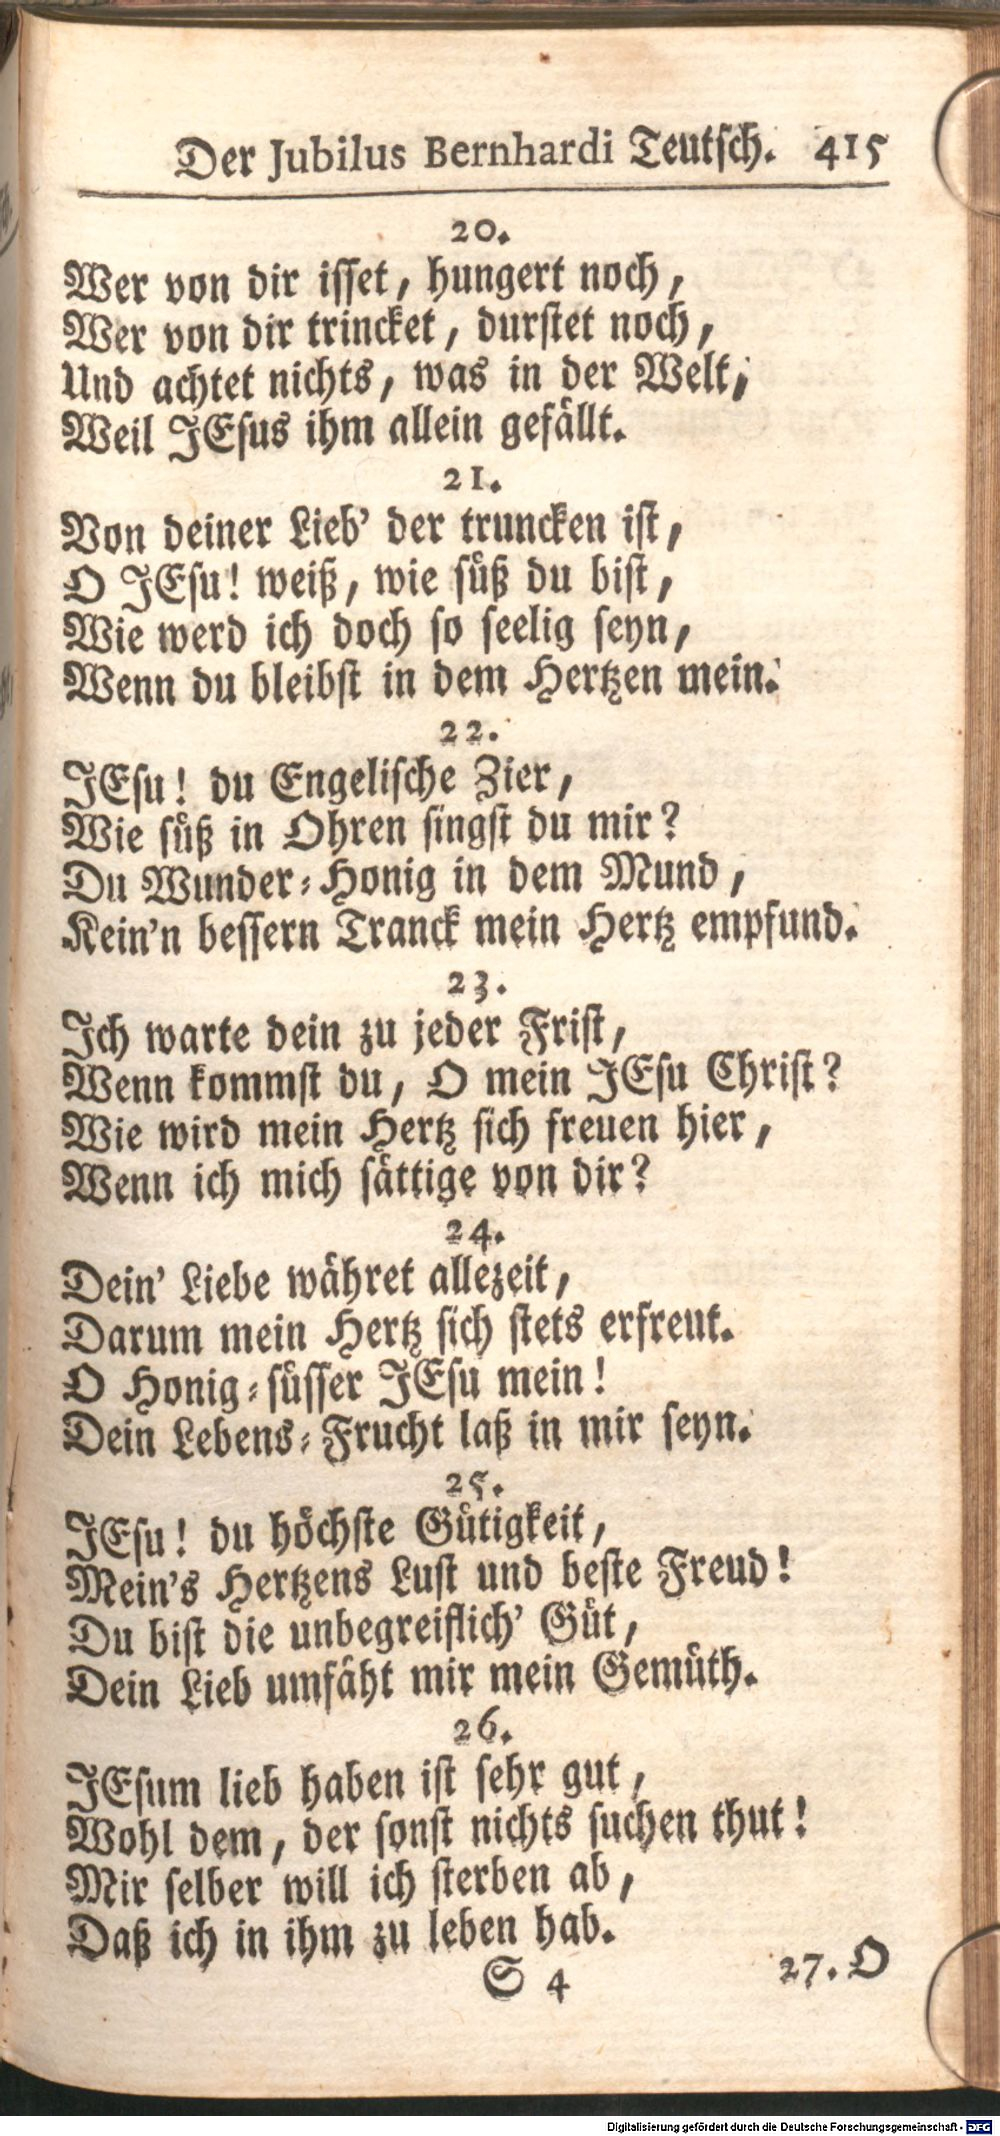 Der Jubilus Bernhardi Teutsch. 415
20.
Wer von dir isset, hungert noch,
Wer von dir trincket, durstet noch,
Und achtet nichts, was in der Welt,
Weil JEsus ihm allein gefällt.
21.
Von deiner Lieb' der truncken ist,
O JEsu! weiß, wie süß du bist,
Wie werd ich doch so seelig seyn,
Wenn du bleibst in dem Hertzen mein.
22.
JEsu! du Engelische Zier,
Wie süß in Ohren singst du mir?
Du Wunder-Honig in dem Mund,
Kein'n bessern Tranck mein Hertz empfund.
23.
Ich warte dein zu jeder Frist,
Wenn kommst du, O mein JEsu Christ?
Wie wird mein Hertz sich freuen hier,
Wenn ich mich sättige von dir?
24.
Dein' Liebe währet allezeit,
Darum mein Hertz sich stets erfreut.
O Honig-süsser JEsu mein!
Dein Lebens-Frucht laß in mir seyn.
25.
JEsu! du höchste Gütigkeit,
Mein's Hertzens Lust und beste Freud!
Du bist die unbegreiflich' Güt,
Dein Lieb umfäht mir mein Gemüth.
26.
JEsum lieb haben ist sehr gut,
Wohl dem, der sonst nichts suchen thut!
Mir selber will ich sterben ab,
Daß ich in ihm zu leben hab.
S 4 27. O
Digitalisierung gefördert durch die Deutsche Forschungsgemeinschaft - DFG